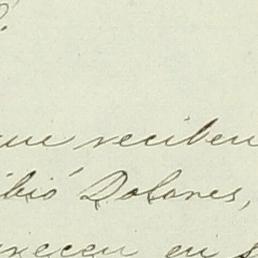 que reciben
ibió Dolores,
recen en s